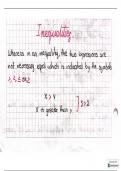 Inequality
Whereas in an inequality, the two expressions are
not necessary equal which is indicated by the symbols
>, <, ≤ or ≥
x > y
x is greater than y.
5 > 2